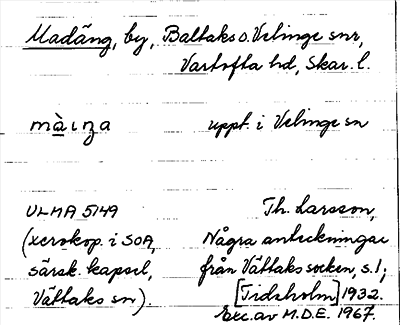 Madäng, by, Baltaks o. Velinge snr,
Vartofta hd, Skar. l.
màiŋa uppt. i Velinge sn
ULMA 5149 Th. Larsson,
(xerokop. i SOA, Några anteckningar
särsk. kapsel, från Vättaks socken, s. 1;
Vättaks sn). [Tidaholm] 1932.
Exc. av M.D.E. 1967.